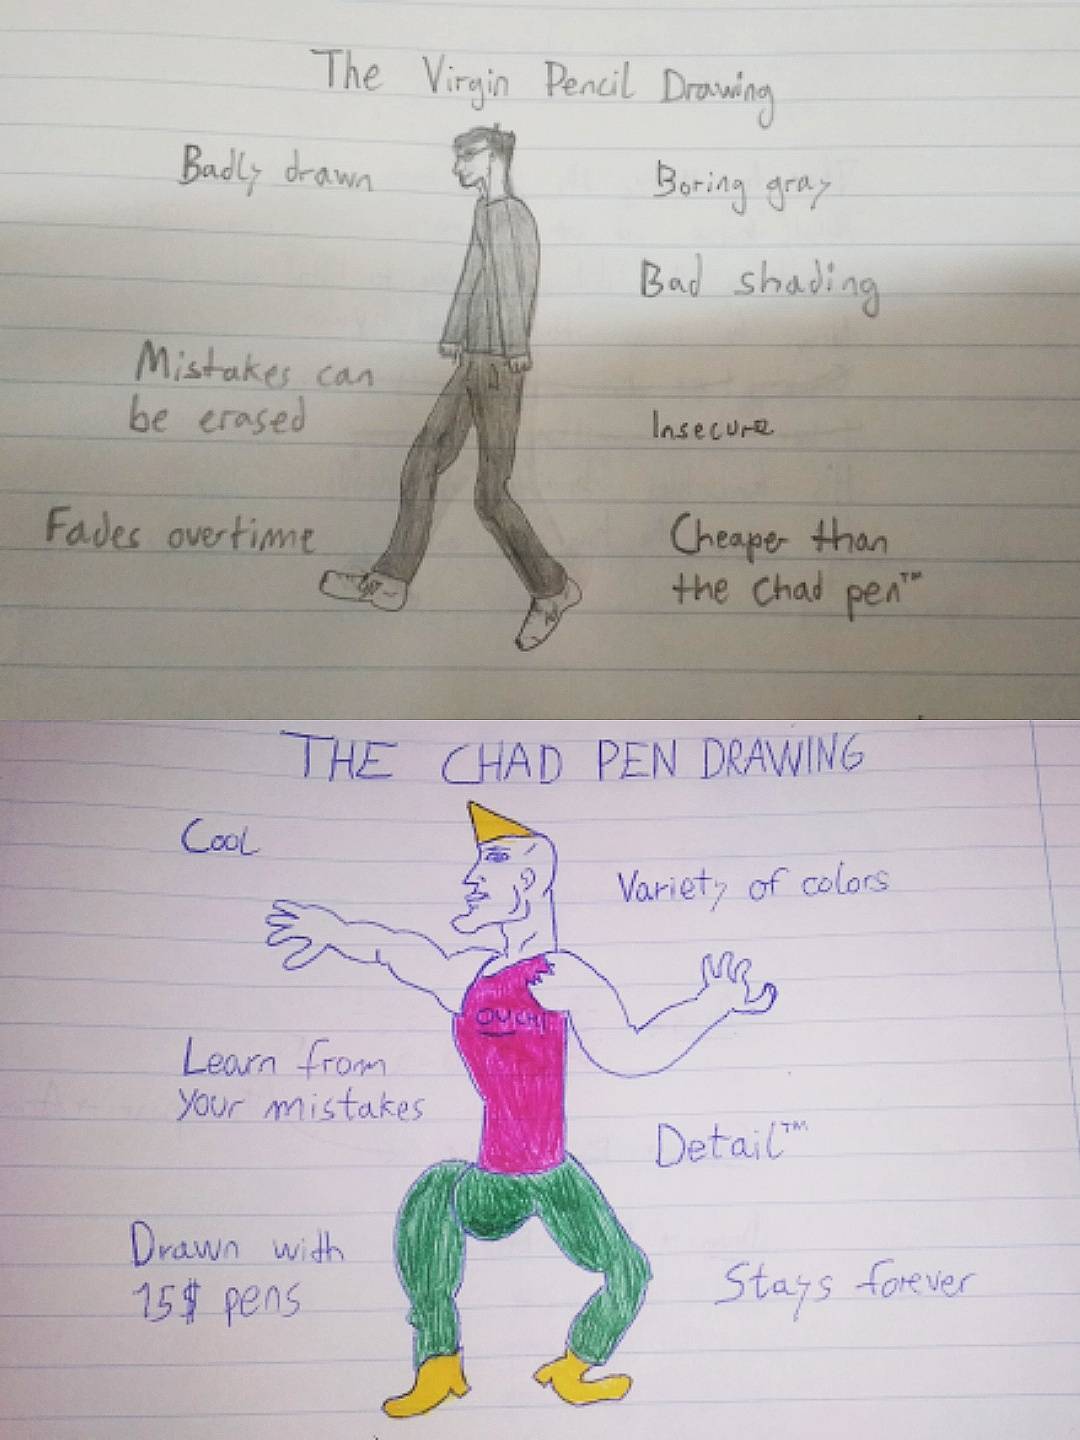 The Virgin Pencil Drawing
Badly drawn
Boring gray
Bad shading
Mistakes can
be erased
Insecure
Fades overtime
Cheaper than
the Chad pen™
THE CHAD PEN DRAWING
Cool
Variety of colors
OUCH!
Learn from
your mistakes
Detail™
Drawn with
15$ pens
Stays forever